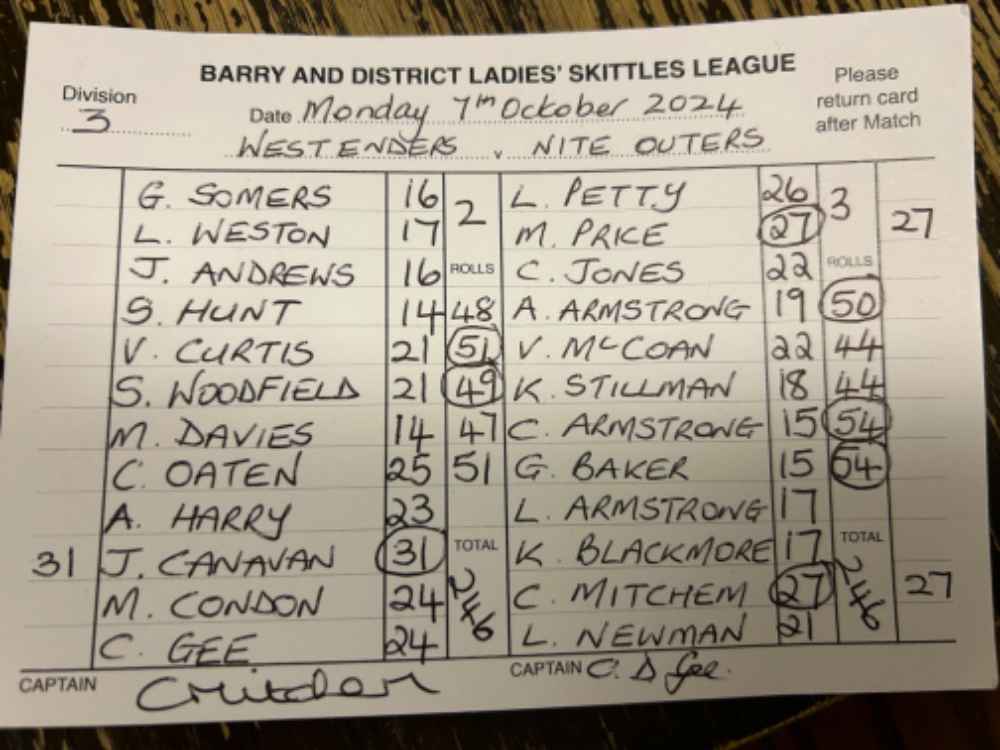 BARRY AND DISTRICT LADIES' SKITTLES LEAGUE
Division
3
Date Monday 7th October 2024
Please
return card
after Match
WESTENDERS v NITE OUTERS
G. SOMERS 16 2 L. PETTY 26 3
L. WESTON 17 M. PRICE 27 27
J. ANDREWS 16 ROLLS C. JONES 22 ROLLS
S. HUNT 14 48 A. ARMSTRONG 19 50
V. CURTIS 21 51 V. McCOAN 22 44
S. WOODFIELD 21 49 K. STILLMAN 18 44
M. DAVIES 14 47 C. ARMSTRONG 15 54
C. OATEN 25 51 G. BAKER 15 54
A. HARRY 23 L. ARMSTRONG 17
31 J. CANAVAN 31 TOTAL K. BLACKMORE 17 TOTAL
M. CONDON 24 246 C. MITCHEM 27 246 27
C. GEE 24 L. NEWMAN 21
CAPTAIN
CAPTAIN C. D Gee.